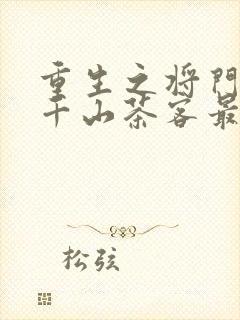 重生之将门
千山茶客最
松弦